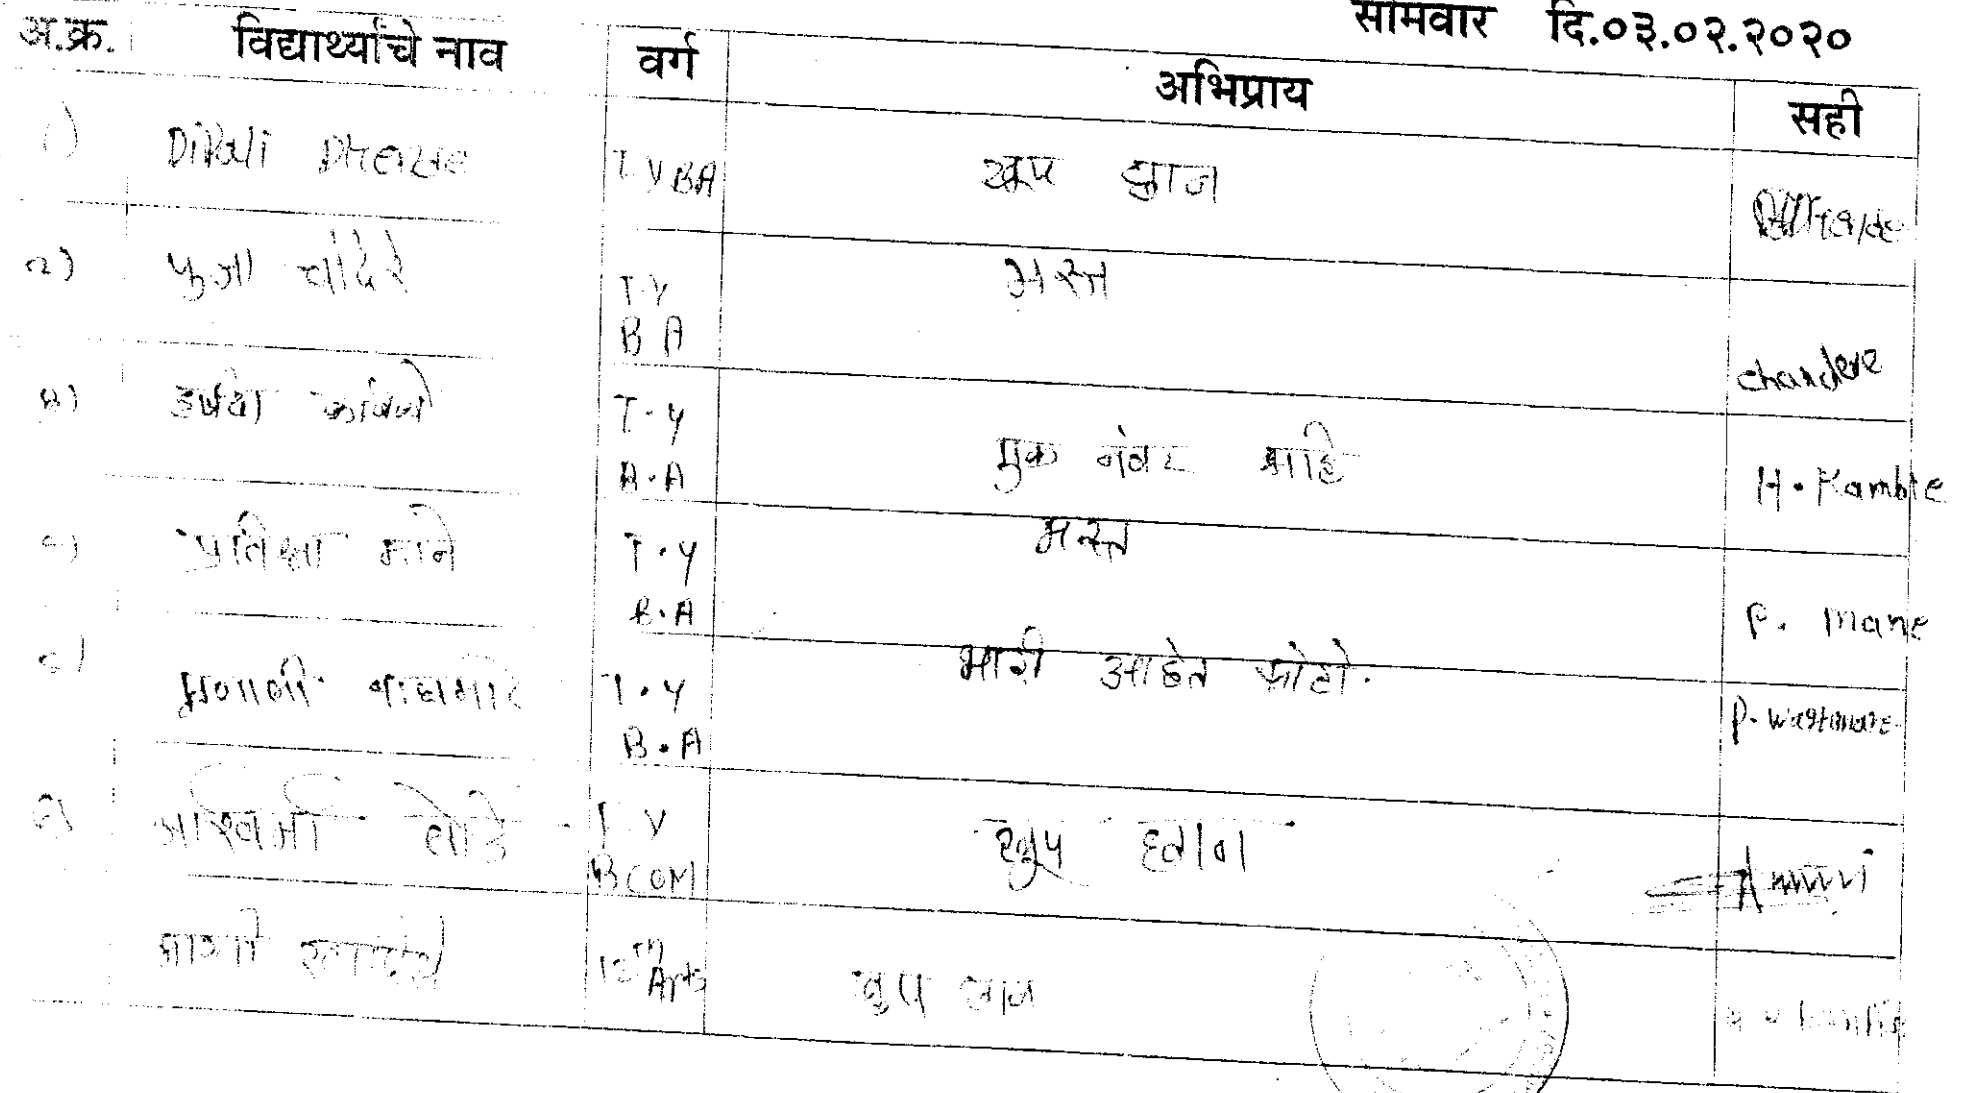 सोमवार दि.०३.०२.२०२०
अ.क्र. विद्यार्थ्यांचे नाव वर्ग अभिप्राय सही
१) Dipali T Y BA खूप छान
२) पुजा चांदेरे T.Y B A मस्त chandere
३) हर्षदा कांबळे T.Y B.A एक नंबर आहे H. Kamble
४) प्रतिक्षा माने T.Y B.A मस्त P. Mane
५) वाघमारे T.Y B.A भारी आहेत फोटो. P. Waghmare
६) अश्विनी T Y BCOM खुप छान
12th Arts खुप छान